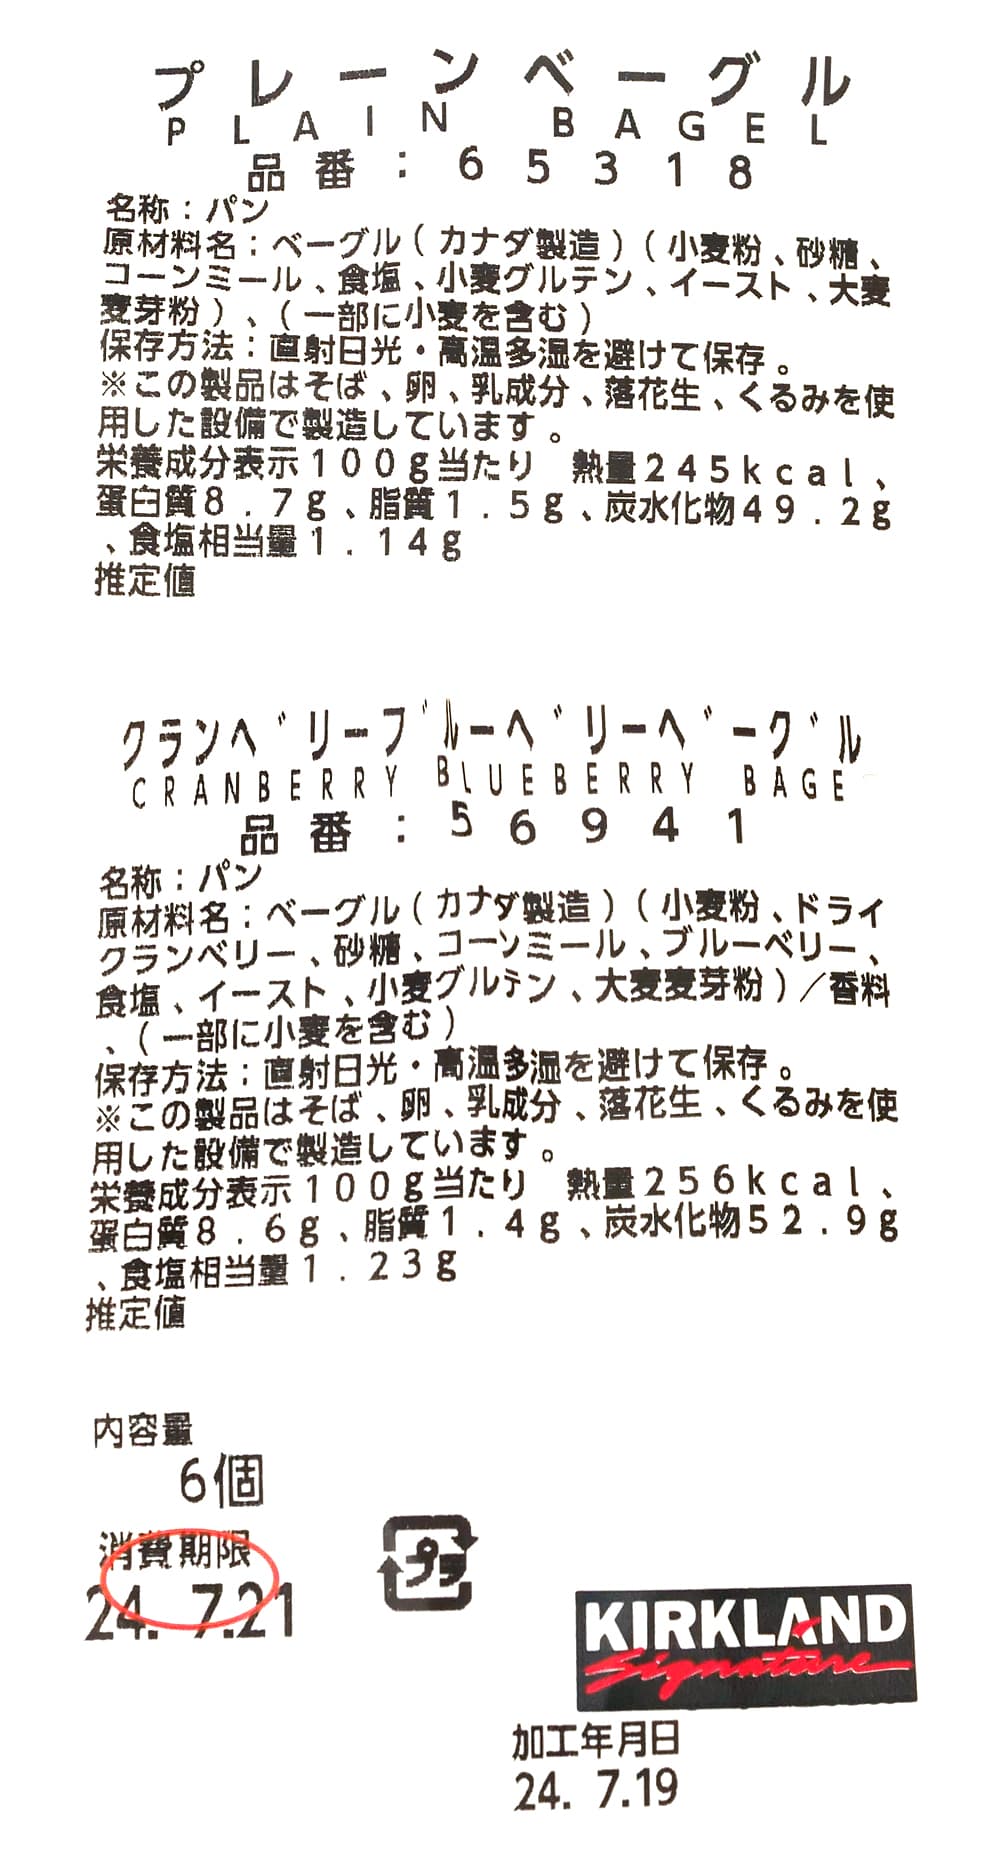 プレーンベーグル
PLAIN BAGEL
品番：65318
名称：パン
原材料名：ベーグル（カナダ製造）（小麦粉、砂糖、
コーンミール、食塩、小麦グルテン、イースト、大麦
麦芽粉）、（一部に小麦を含む）
保存方法：直射日光・高温多湿を避けて保存。
※この製品はそば、卵、乳成分、落花生、くるみを使
用した設備で製造しています。
栄養成分表示100g当たり　熱量245kcal、
蛋白質8．7g、脂質1．5g、炭水化物49．2g
、食塩相当量1．14g
推定値
クランベリーブルーベリーベーグル
CRANBERRY BLUEBERRY BAGE
品番：56941
名称：パン
原材料名：ベーグル（カナダ製造）（小麦粉、ドライ
クランベリー、砂糖、コーンミール、ブルーベリー、
食塩、イースト、小麦グルテン、大麦麦芽粉）／香料
、（一部に小麦を含む）
保存方法：直射日光・高温多湿を避けて保存。
※この製品はそば、卵、乳成分、落花生、くるみを使
用した設備で製造しています。
栄養成分表示100g当たり　熱量256kcal、
蛋白質8．6g、脂質1．4g、炭水化物52．9g
、食塩相当量1．23g
推定値
内容量
6個
消費期限
24. 7.21
プラ
KIRKLAND
Signature
加工年月日
24. 7.19